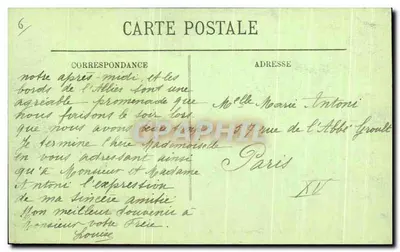 6
CARTE POSTALE
CORRESPONDANCE
notre après-midi, et les
bords de l'Allier sont une
agréable promenade que
nous faisons le soir lors
que nous avons
Je termine Mademoiselle
en vous adressant ainsi
qu'à Monsieur et Madame
Antoni l'expression
de ma sincère amitié
Mon meilleur souvenir à
Monsieur votre Frère.
Louise
ADRESSE
Melle Marie Antoni
rue de l'Abbé Groult
Paris
XV
CARTORUM